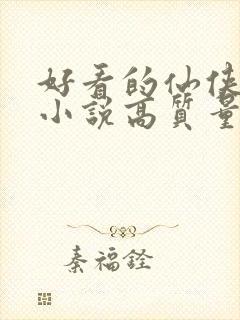 好看的仙侠
小说高质量
秦福铨